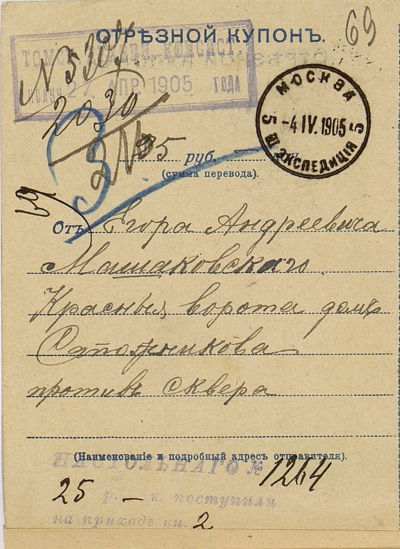 ОТРѢЗНОЙ КУПОНЪ.
69
ТОМСК. ДУХОВН. КОНСИСТ.
27 АПР 1905 ГОДА
№ 5302
2030
3
МОСКВА
-4 IV. 1905
5 5
Ш ЭКСПЕДИЦІЯ
25 руб.
(сумма перевода).
69
Отъ Егора Андреевича
Машаковскаго.
Красныя ворота домъ
Сапожникова
противъ сквера
(Наименованіе и подробный адресъ отправителя).
НАСТОЛЬНАГО № 1264
25 р. — к. поступили
на приходъ кн. 2